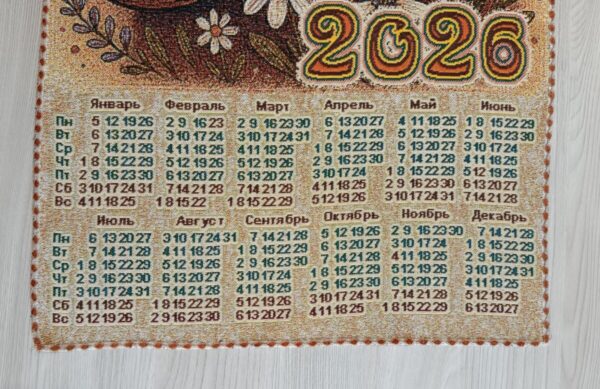 2026
Январь Февраль Март Апрель Май Июнь
Пн 5 12 19 26 2 9 16 23 2 9 16 23 30 6 13 20 27 4 11 18 25 1 8 15 22 29
Вт 6 13 20 27 3 10 17 24 3 10 17 24 31 7 14 21 28 5 12 19 26 2 9 16 23 30
Ср 7 14 21 28 4 11 18 25 4 11 18 25 1 8 15 22 29 6 13 20 27 3 10 17 24
Чт 1 8 15 22 29 5 12 19 26 5 12 19 26 2 9 16 23 30 7 14 21 28 4 11 18 25
Пт 2 9 16 23 30 6 13 20 27 6 13 20 27 3 10 17 24 1 8 15 22 29 5 12 19 26
Сб 3 10 17 24 31 7 14 21 28 7 14 21 28 4 11 18 25 2 9 16 23 30 6 13 20 27
Вс 4 11 18 25 1 8 15 22 1 8 15 22 29 5 12 19 26 3 10 17 24 31 7 14 21 28
Июль Август Сентябрь Октябрь Ноябрь Декабрь
Пн 6 13 20 27 3 10 17 24 31 7 14 21 28 5 12 19 26 2 9 16 23 30 7 14 21 28
Вт 7 14 21 28 4 11 18 25 1 8 15 22 29 6 13 20 27 3 10 17 24 1 8 15 22 29
Ср 1 8 15 22 29 5 12 19 26 2 9 16 23 30 7 14 21 28 4 11 18 25 2 9 16 23 30
Чт 2 9 16 23 30 6 13 20 27 3 10 17 24 1 8 15 22 29 5 12 19 26 3 10 17 24 31
Пт 3 10 17 24 31 7 14 21 28 4 11 18 25 2 9 16 23 30 6 13 20 27 4 11 18 25
Сб 4 11 18 25 1 8 15 22 29 5 12 19 26 3 10 17 24 31 7 14 21 28 5 12 19 26
Вс 5 12 19 26 2 9 16 23 30 6 13 20 27 4 11 18 25 1 8 15 22 29 6 13 20 27